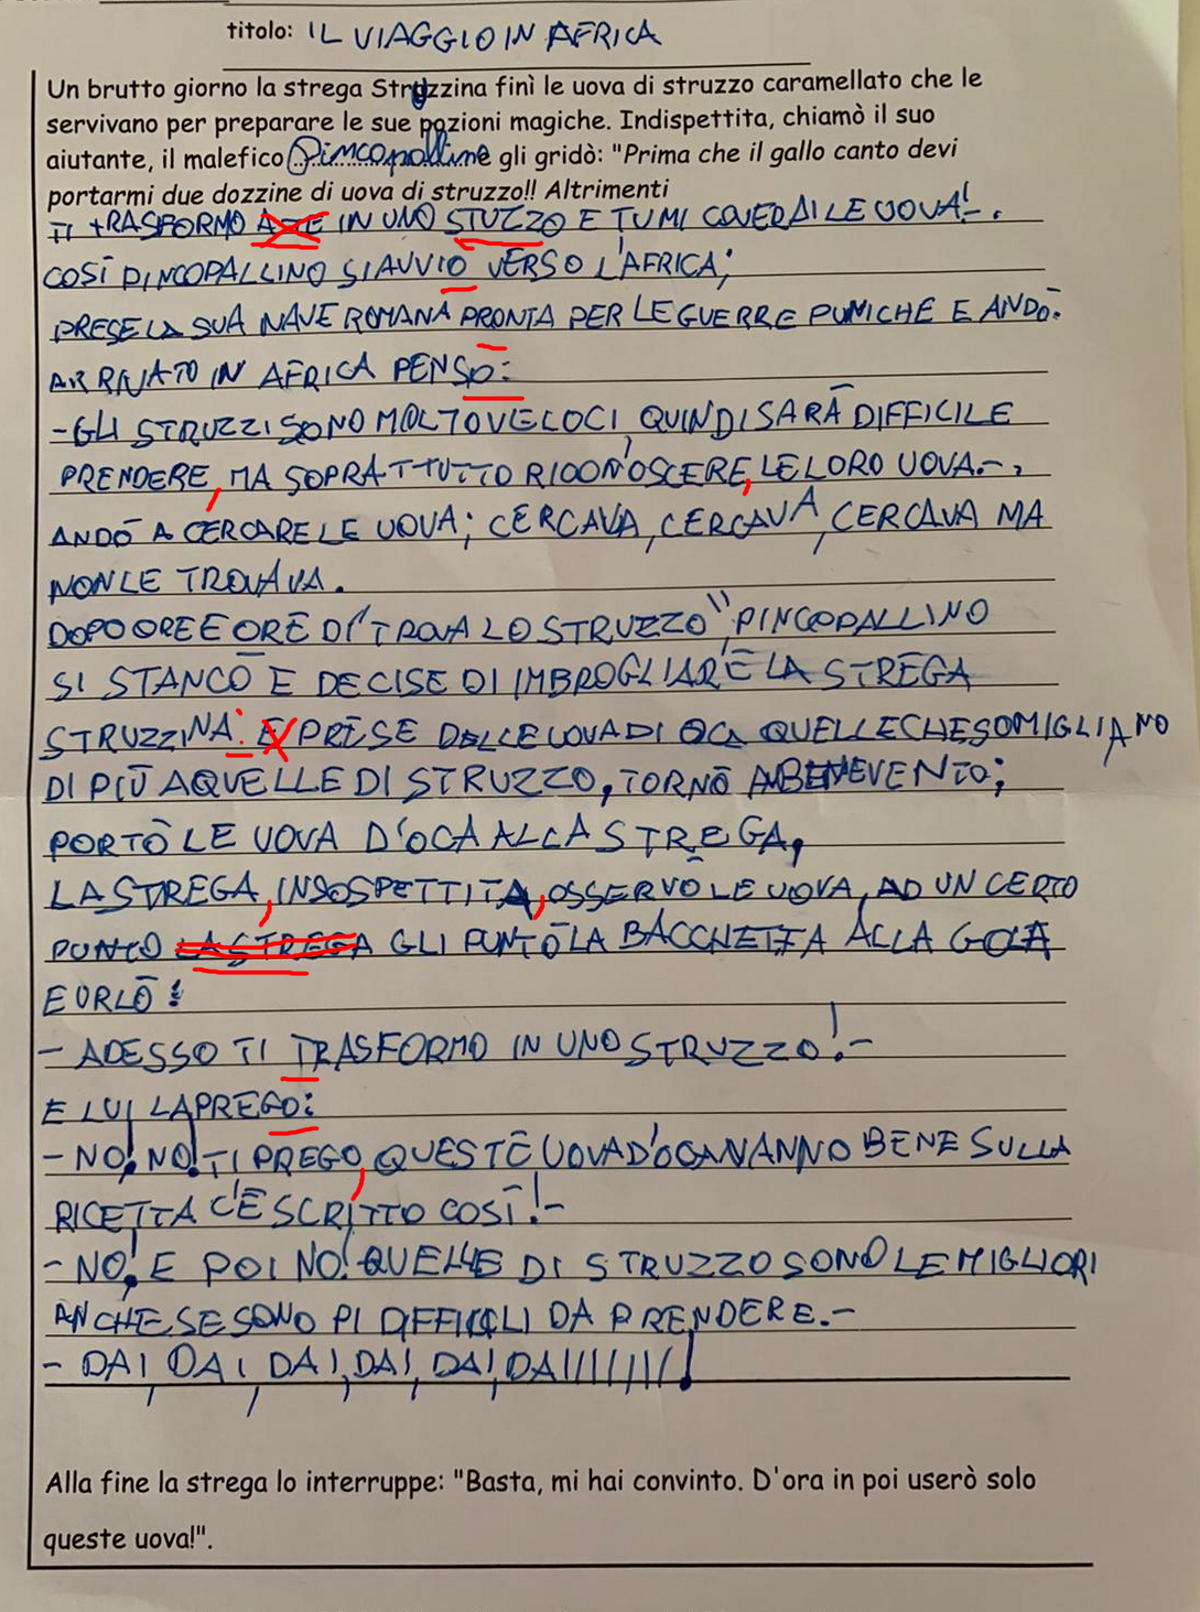 titolo: IL VIAGGIO IN AFRICA
Un brutto giorno la strega Struzzina finì le uova di struzzo caramellato che le
servivano per preparare le sue pozioni magiche. Indispettita, chiamò il suo
aiutante, il malefico Pincopallino e gli gridò: "Prima che il gallo canto devi
portarmi due dozzine di uova di struzzo!! Altrimenti
TI TRASFORMO A TE IN UNO STUZZO E TU MI COVERAI LE UOVA!-.
COSÌ PINCOPALLINO SI AVVIO VERSO L'AFRICA;
PRESE LA SUA NAVE ROMANA PRONTA PER LE GUERRE PUNICHE E ANDÒ.
ARRIVATO IN AFRICA PENSO:
-GLI STRUZZI SONO MOLTO VELOCI, QUINDI SARÀ DIFFICILE
PRENDERE, MA SOPRATTUTTO RICONOSCERE, LE LORO UOVA.-,
ANDÒ A CERCARE LE UOVA; CERCAVA, CERCAVA, CERCAVA MA
NON LE TROVAVA.
DOPO ORE E ORE DI "TROVA LO STRUZZO", PINCOPALLINO
SI STANCÒ E DECISE DI IMBROGLIARE LA STREGA
STRUZZINA: E PRESE DELLE UOVA DI OCA QUELLE CHE SOMIGLIANO
DI PIÙ A QUELLE DI STRUZZO, TORNÒ A BENEVENTO;
PORTÒ LE UOVA D'OCA ALLA STREGA,
LA STREGA, INSOSPETTITA, OSSERVÒ LE UOVA, AD UN CERTO
PUNTO LA STREGA GLI PUNTÒ LA BACCHETTA ALLA GOLA
E URLÒ:
- ADESSO TI TRASFORMO IN UNO STRUZZO!-
E LUI LA PREGO:
- NO! NO! TI PREGO, QUESTE UOVA D'OCA VANNO BENE SULLA
RICETTA C'È SCRITTO COSÌ!-
- NO! E POI NO! QUELLE DI STRUZZO SONO LE MIGLIORI
ANCHE SE SONO PI DIFFICILI DA PRENDERE.-
- DAI, DAI, DAI, DAI, DAI, DAIIIIIII!
Alla fine la strega lo interruppe: "Basta, mi hai convinto. D'ora in poi userò solo
queste uova!".